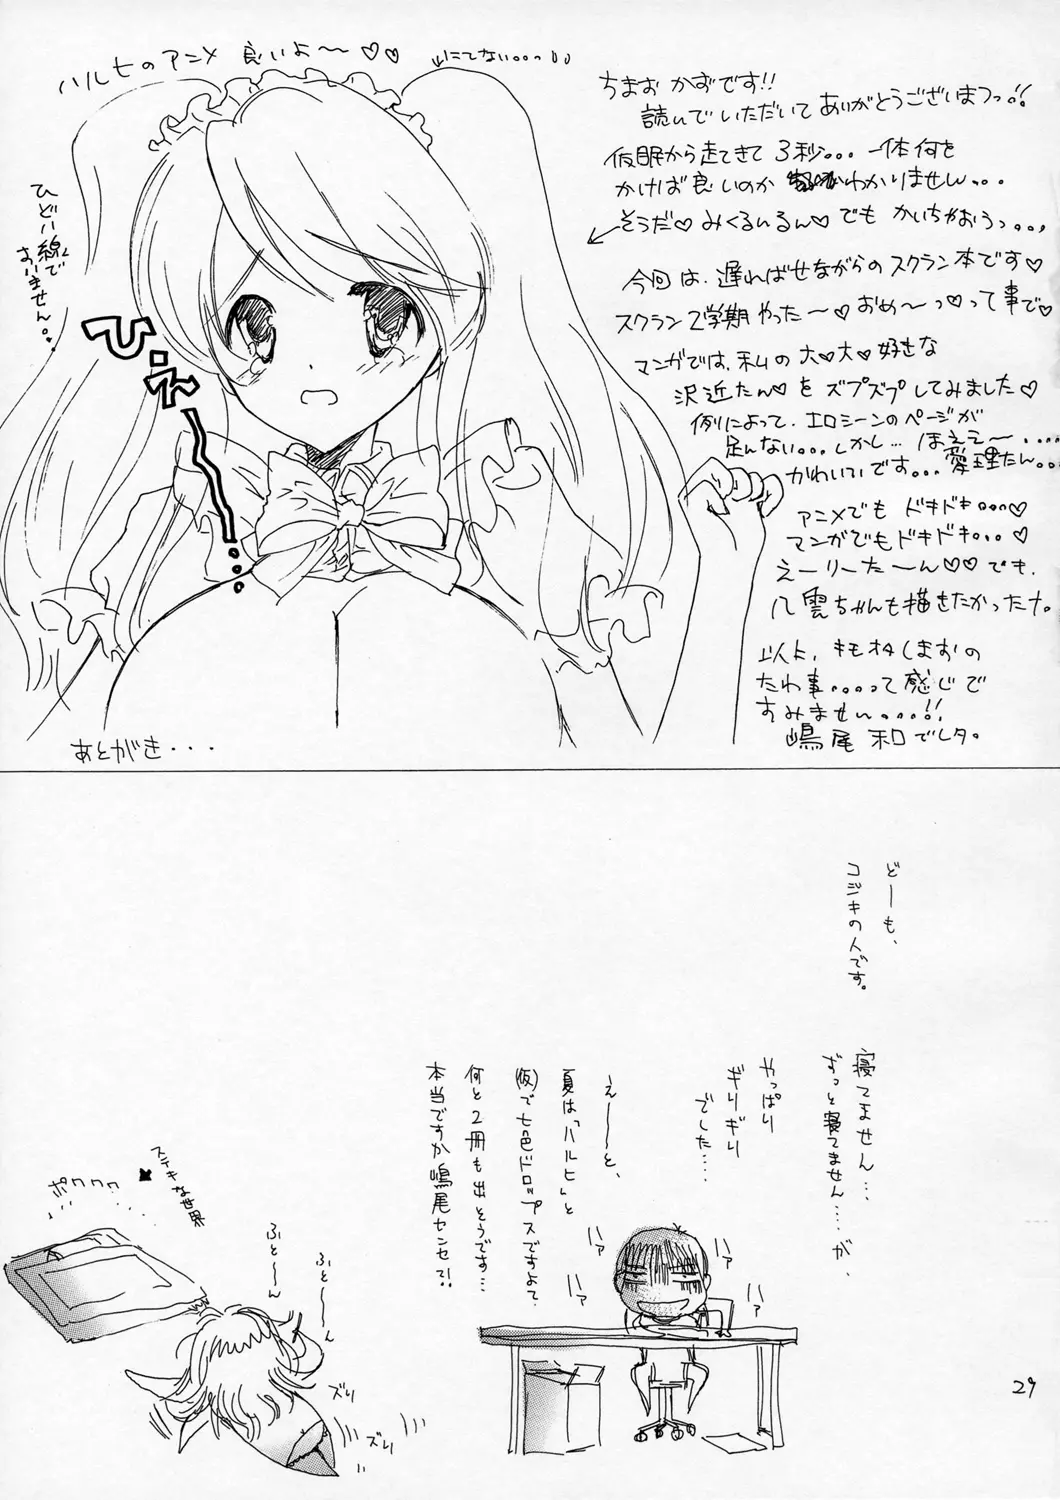 ハルヒのアニメ 良いよ〜♡♡
↓にてない。。っ
ひどい線で
すいません。。
ひ・え
ちまお かずです!!
読んでいただいて ありがとうございまつっ!!
仮眠から走てきて 3秒。。。一体何を
かけば良いのか わかりません。。。
そうだ♡みくるいるん♡ でも かいちゃおうっ。。。
今回は、遅ればせながらのスクラン本です♡
スクラン2学期やった〜♡おめ〜っ♡って事で♡
マンガでは、私の大♡大♡好きな
沢近たん♡を ズプズプしてみました♡
例によって、エロシーンのページが
足んない。。。しかし… ほええ〜、...
かわいいです。。。愛理たん。。
アニメでも ドキドキ。。。♡
マンガでもドキドキ。。。♡
えーリーた〜ん♡♡でも、
八雲ちゃんも描きたかったナ。
以上、キモオタしまおの
たわ事。。。。って感じで
すみません。。。。!!
嶋尾 和でしタ。
あとがき・・・
どーも、
コジキの人です。
寝てません…
ずっと寝てません……が、
やっぱり
ギリギリ
でした…
え——と、
夏は「ハルヒ」と
(仮)で七色ドロップスですよて、
何と2冊も出そうです…
本当ですか嶋尾センセ?!
ステキな世界
ポワワワ
ふと〜ん
ふと〜ん
ズリ
ズリ
ハァ
ハァ
ハァ
ハァ
29